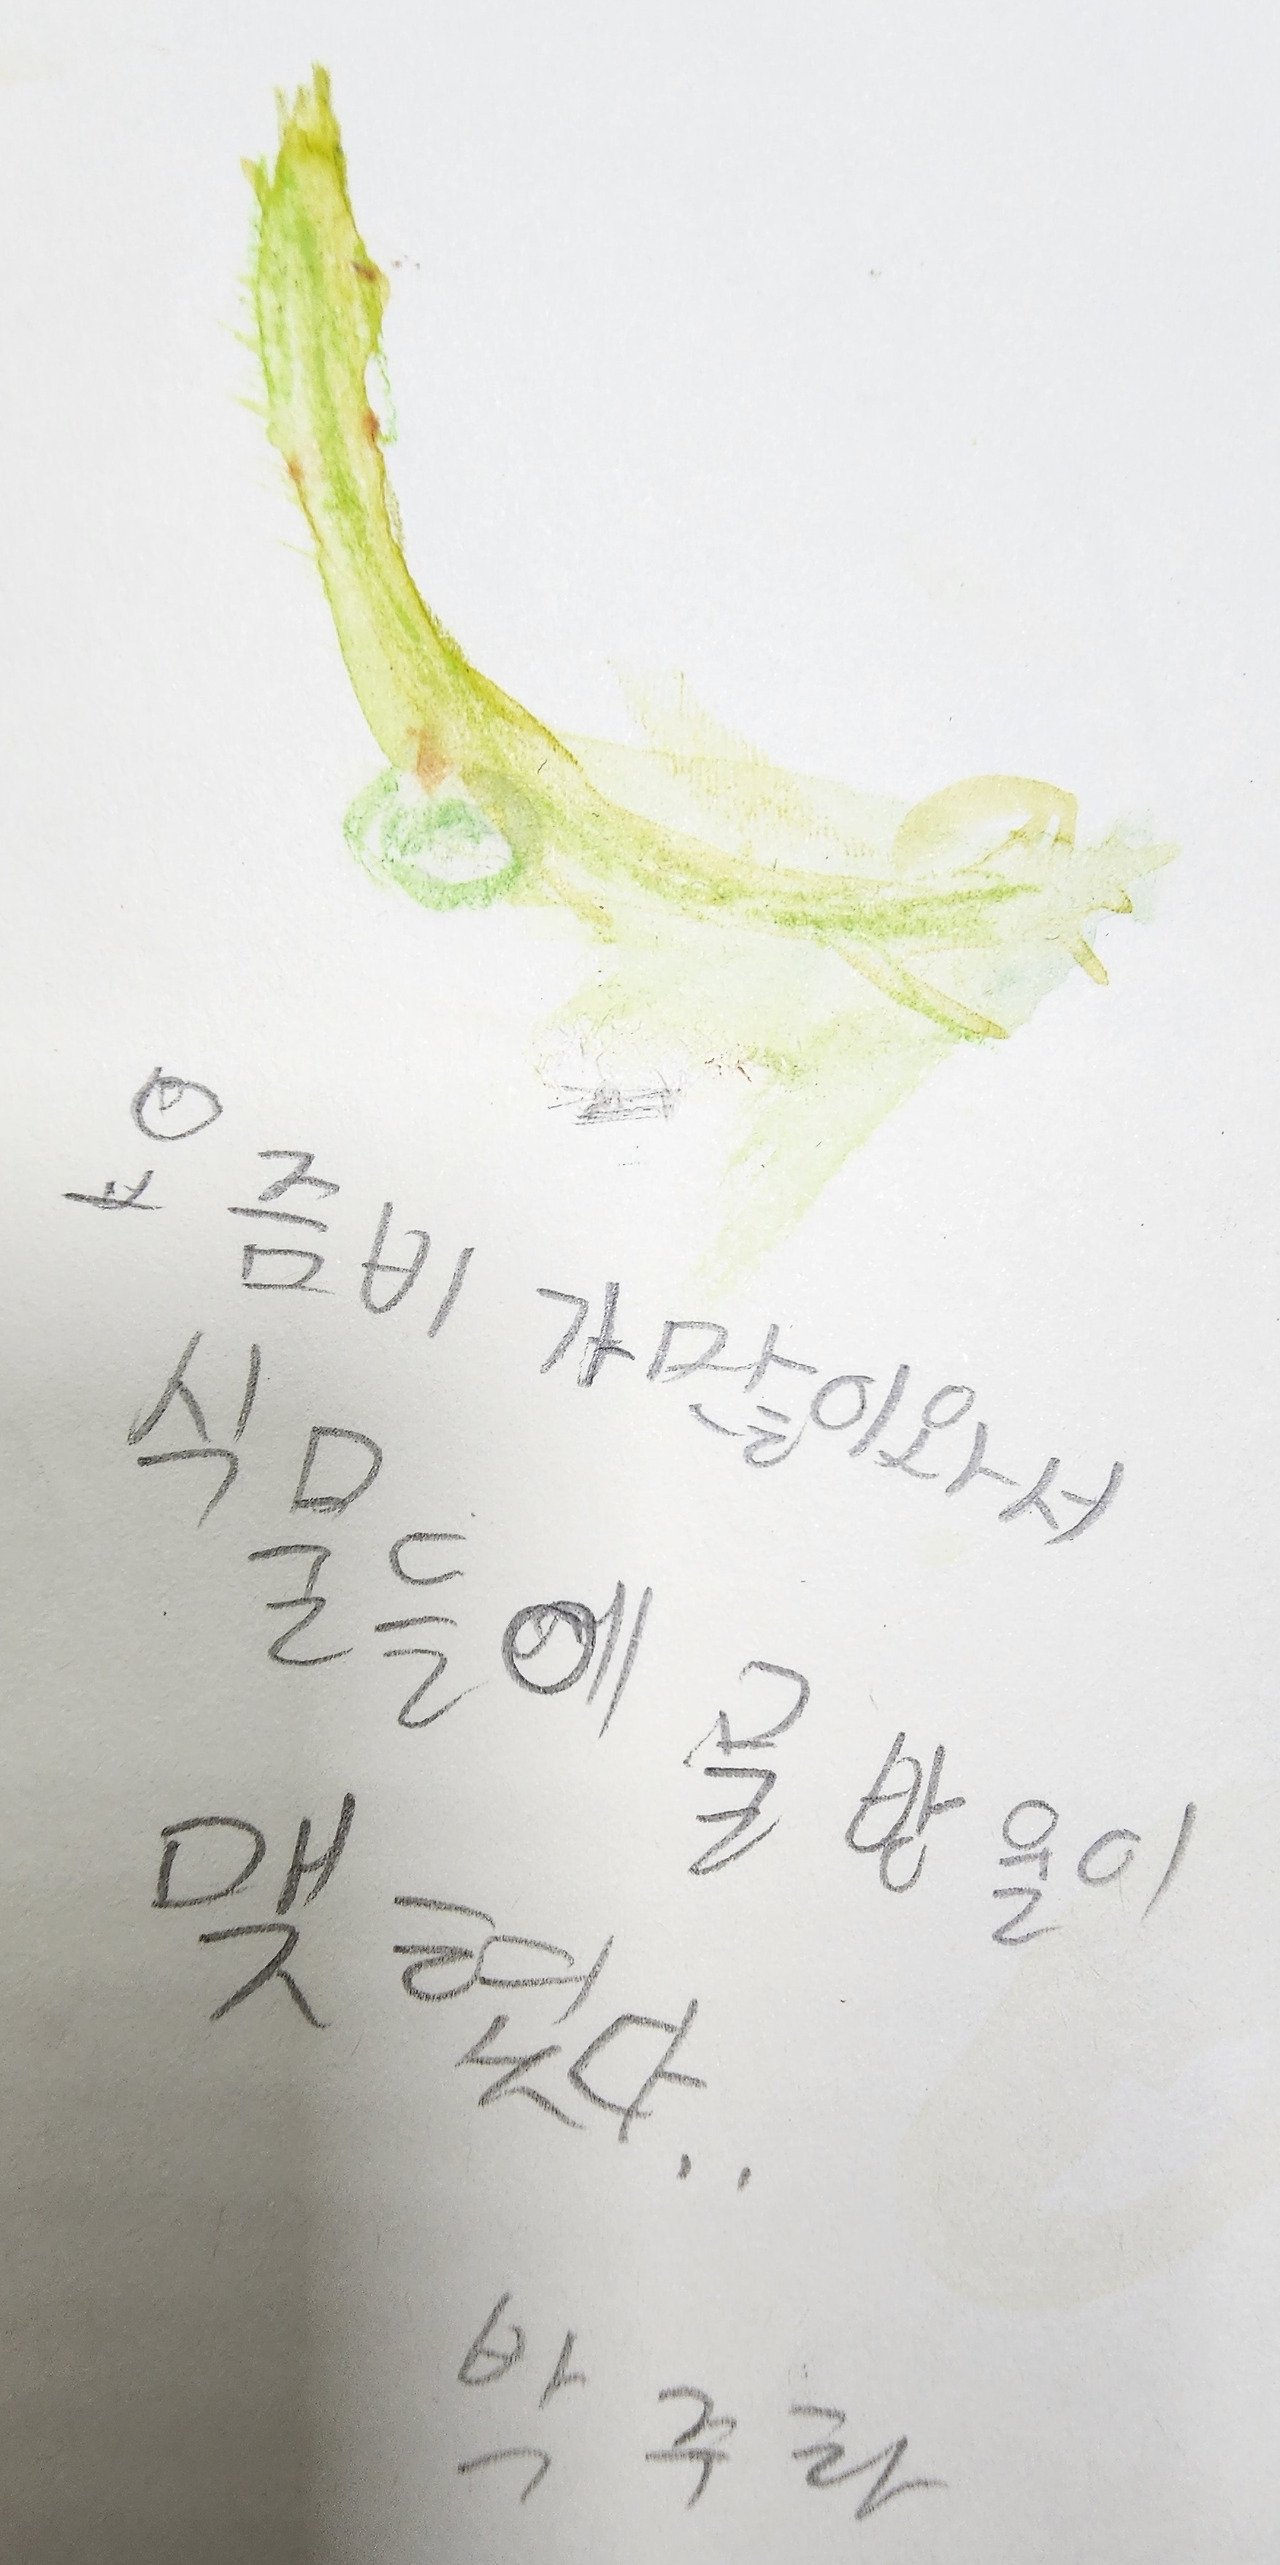 요즘비 가많이와서
식물들에 물방울이
맺혔다..
박주라